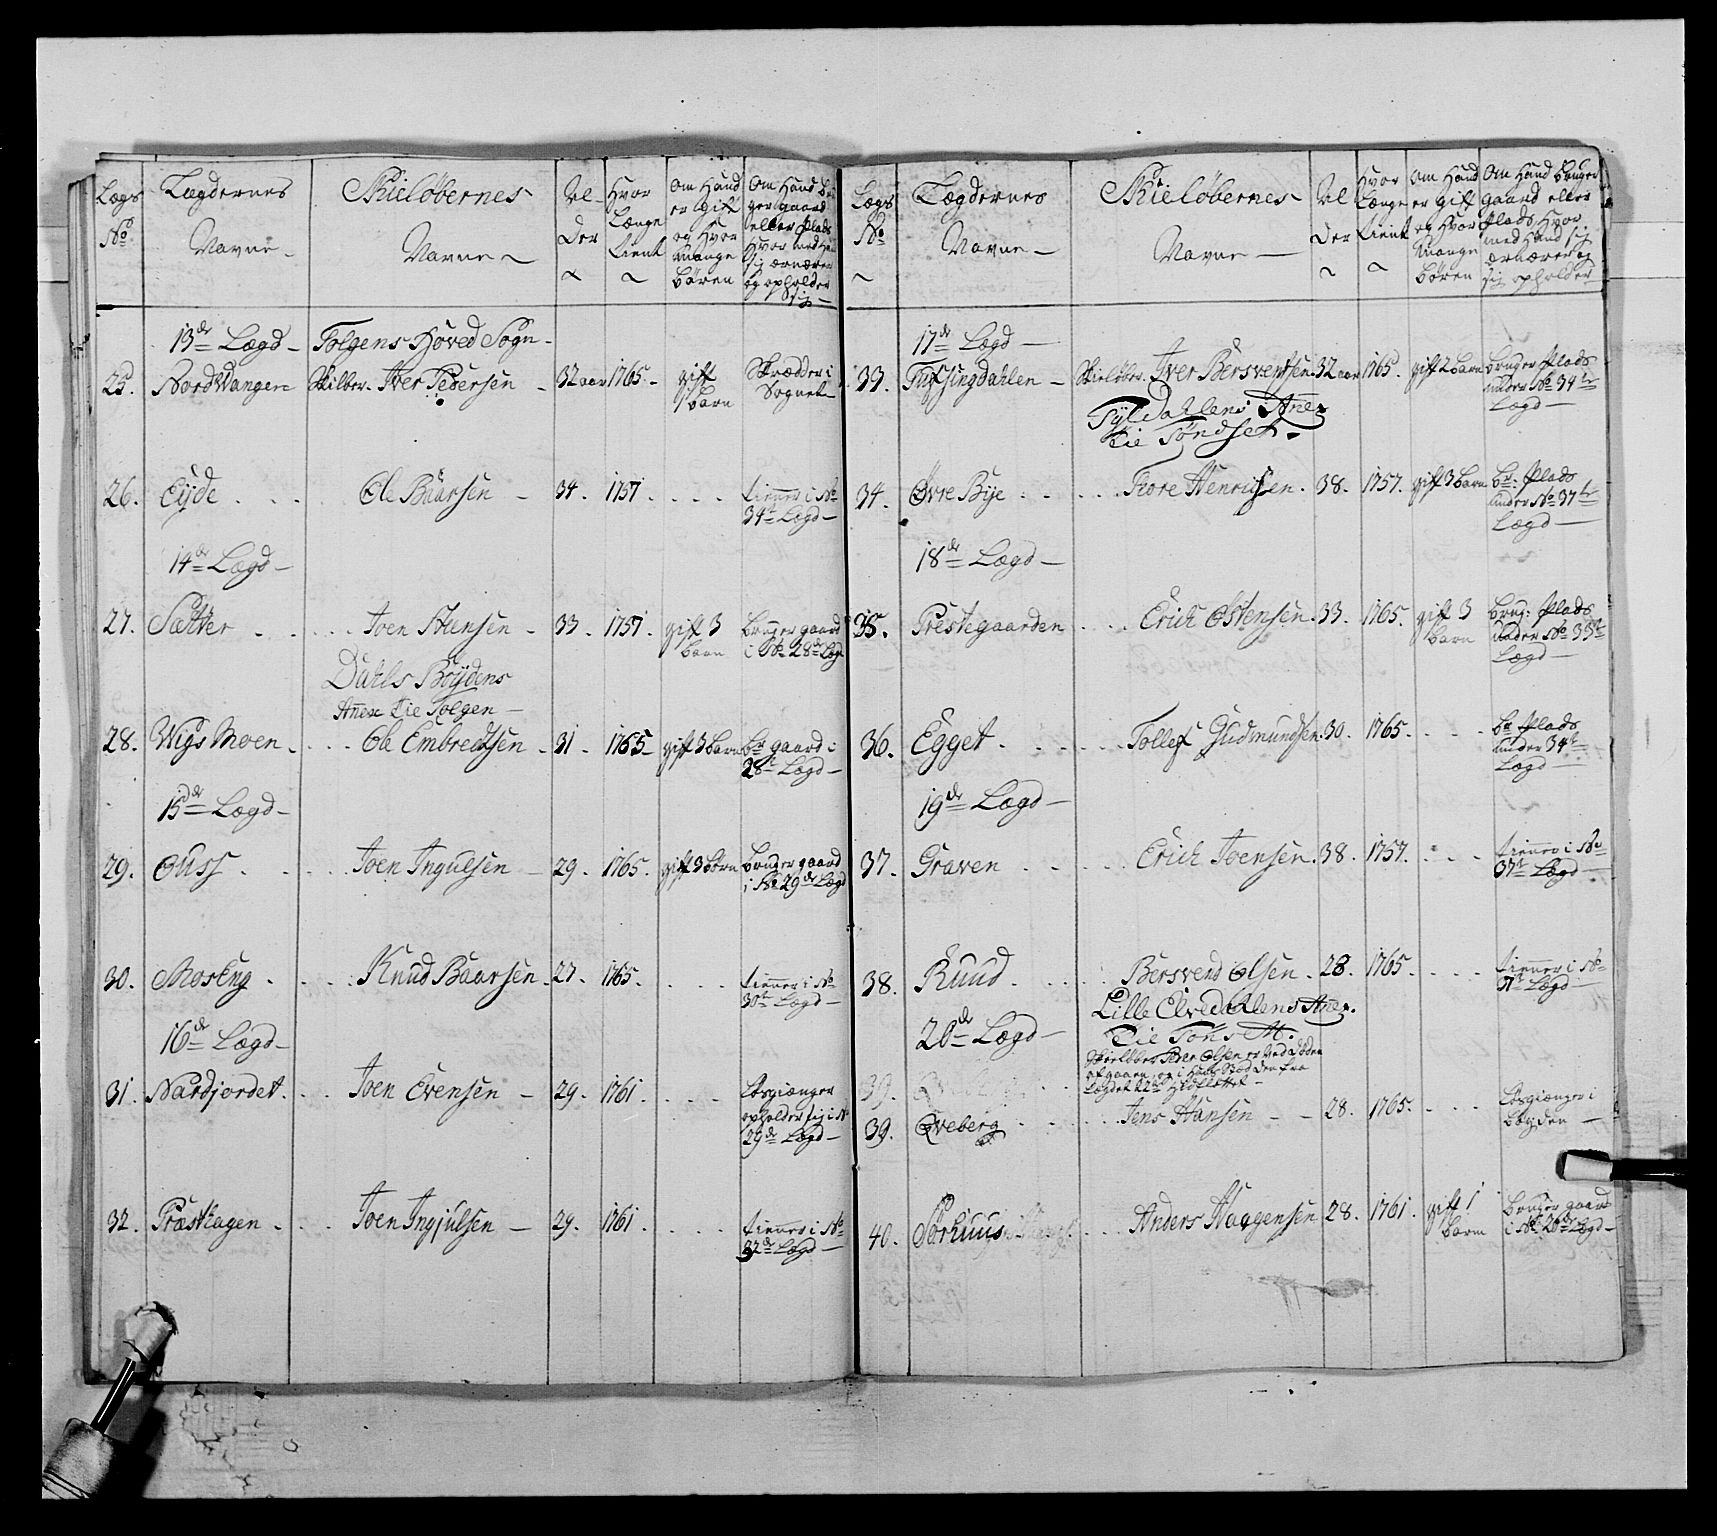 Lægs No
Lægdernes Navne
Skieløbernes Navne
Alder
Hvor Længe tient
Om Hand er gift og Hvor mange Børen
Om Hand bruger gaard eller Plads Hvor med Hand sig ærnærer og opholder sig
13de Lægd Tolgens Hoved Sogn
25. NordVangen Skilber. Iver Pedersen 32 aar 1765. gift 1 barn Skrædder i Sognet
26. Eyde Ole Baarsen 34. 1757. tienner i No 34te Lægd
14de Lægd
27. Sætter Joen Steensen 33. 1757. gift 3 barn bruger gaard i No 28de Læg
Dahls Bøydens
Annex tie Tolgen
28. Wigs Moen Ole Embredtsen 31. 1765 gift 3 barn br gaard i 28t Lægd
15de Lægd
29. Guss Joen Ingulsen 29. 1765. gift 3 børn bruger gaard i No 29de Lægd
30. MosEng Knud Baarsen 27. 1765. tienner i No 30te Lægd
16de Lægd
31. Nardjordet Joen Evensen 29. 1761. Løsgiænger opholder sig i No 29de Lægd
32. Præsthagen Joen Ingjulsen 29. 1761. tienner i No 32de Lægd
Lægs No
Lægdernes Navne
Skieløbernes Navne
Alder
Hvor Længe tient
Om Hand er gift og Hvor mange Børen
Om Hand bruger gaard eller Plads Hvor med Hand sig ærnærer og sig opholder
17de Lægd
33. Tufsingdahlen Skieløber. Iver Bersvendsen 32 aar 1765. gift 2 barn bruger Plads under No 34te Lægd
Tyldahlens Anex
tie Tøndset
34. Øvre Bye Tore Henrichsen. 38. 1757. gift 3 barn br: Plads under No 37te Lægd
18de Lægd
35. Prestegaarden Erich Østensen. 33. 1765. gift 3 barn brug: Plads under No 33te Lægd
36. Egget Tollef Gudmundsen. 30. 1765. br Plads under 34te Lægd
19de Lægd
37. Graven Erich Joensen. 38. 1757. tienner i No 37te Lægd
38. Ruud Bersvend Olsen. 28. 1765. tienner i No 37te Lægd
Lille Elvedahlens Anex.
20de Lægd Tie Tøns M.
Skieløber Peder Olsen er ved Døden
afgaaen, og i Hans Stæd den fra
Lægdet
39. Qveberg Jens Hansen 28. 1765. Løsgiænger i Bøgden
40. Sørhuus Anders Haggensen 28. 1761. gift 1 barn bruger gaard i No 20de Lægd